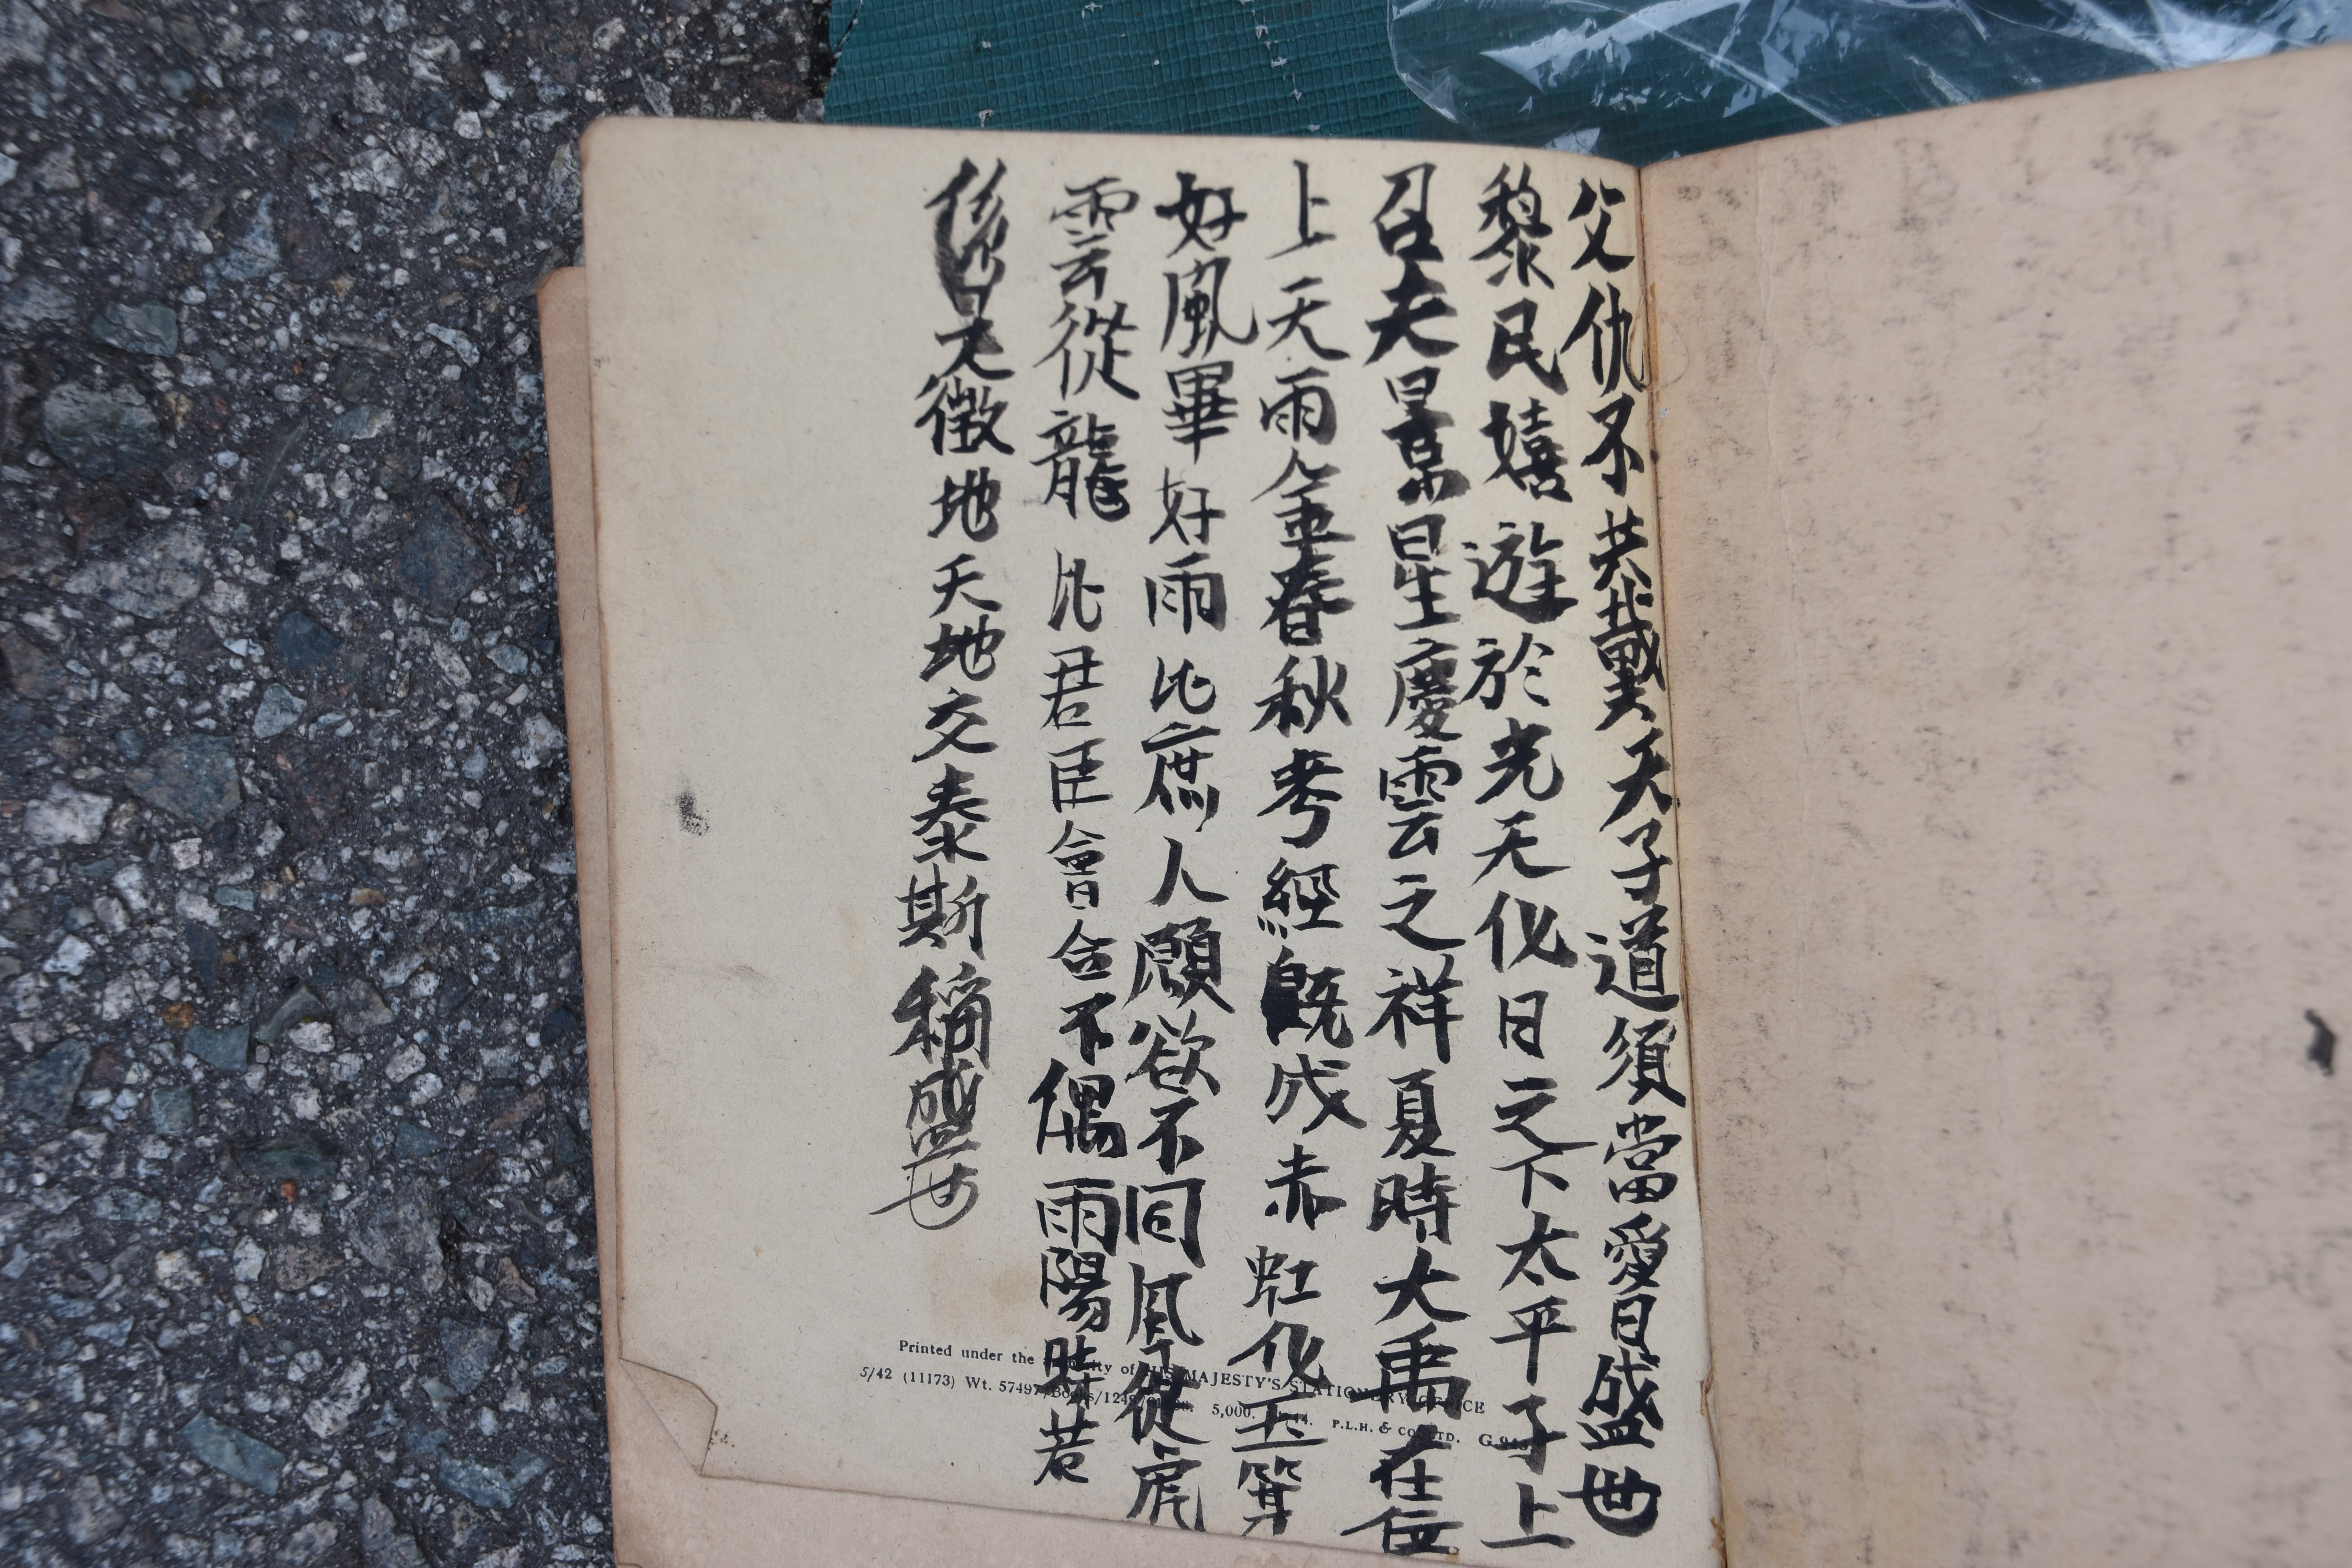 父仇不共戴天子道須當愛日盛世
黎民嬉遊於光天化日之下太平子上
召夫景星慶雲之祥夏時大禹在位
上天雨金春秋考經既成赤虹化玉箕
好風畢好雨比庶人願欲不同風從虎
雲從龍比君臣會合不偶雨陽時若
係是休徵地天地交泰斯稱盛世
Printed under the of HIS MAJESTY'S STATIONERY OFFICE
5/42 (11173) Wt. 57497 5,000. P.L.H. & CO. LTD. G.